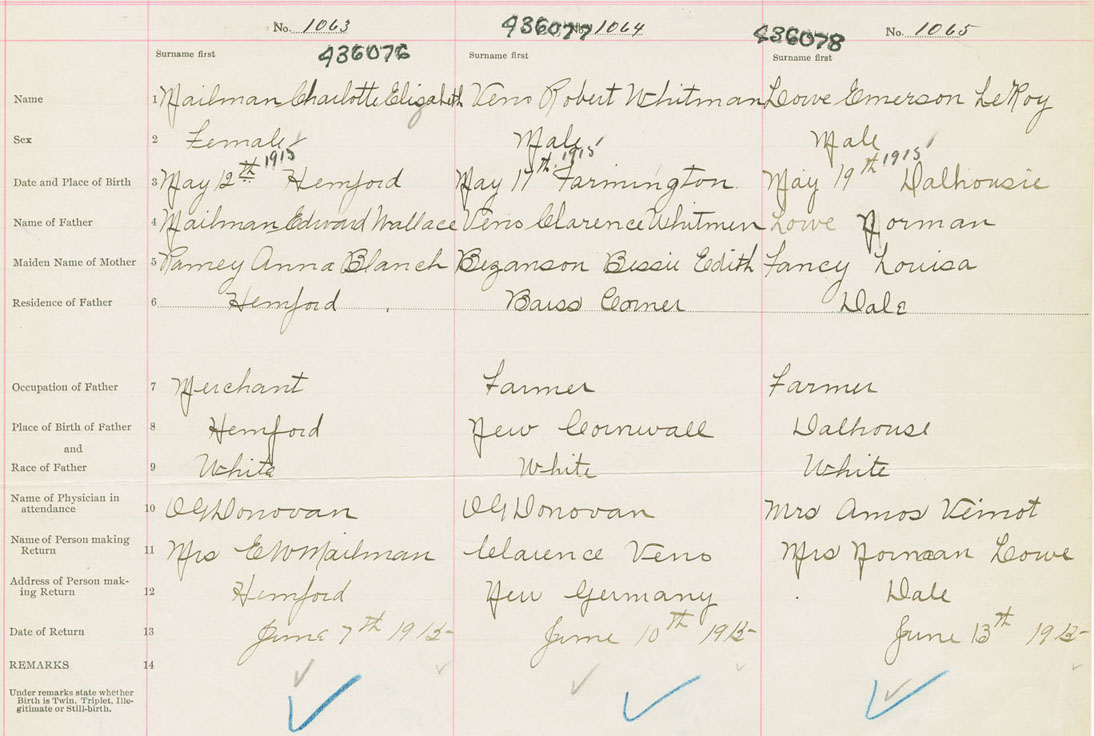 No. 1063 436077 No. 1064 436078 No. 1065
436076
Surname first Surname first Surname first
Name 1 Mailman Charlotte Elizabeth Veno Robert Whitman Lowe Emerson LeRoy
Sex 2 Female Male Male
Date and Place of Birth 3 May 12th 1915 Hemford May 17th 1915 Farmington May 19th 1915 Dalhousie
Name of Father 4 Mailman Edward Wallace Veno Clarence Whitman Lowe Norman
Maiden Name of Mother 5 Ramey Anna Blanch Bezanson Bessie Edith Fancy Louisa
Residence of Father 6 Hemford Barss Corner Dale
Occupation of Father 7 Merchant Farmer Farmer
Place of Birth of Father 8 Hemford New Cornwall Dalhouse
and
Race of Father 9 White White White
Name of Physician in
attendance 10 O G Donovan O G Donovan Mrs Amos Veinot
Name of Person making
Return 11 Mrs E W Mailman Clarence Veno Mrs Norman Lowe
Address of Person mak-
ing Return 12 Hemford New Germany Dale
Date of Return 13 June 7th 1915 June 10th 1915 June 13th 1915
REMARKS 14
Under remarks state whether
Birth is Twin, Triplet, Ille-
gitimate or Still-birth.